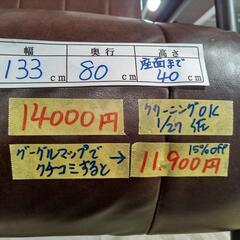 幅 奥行 高さ
133cm 80cm 座面まで40cm
14000円
クリーニングOK
1/27 佐
グーグルマップで
クチコミすると → 15%off
11.900円